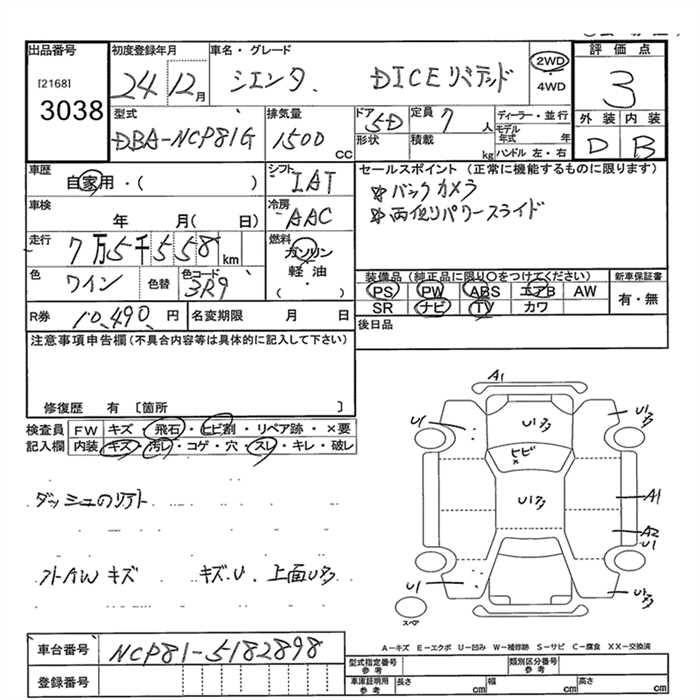 出品番号
[2168]
3038
初度登録年月
24 12月
車名・グレード
シエンタ. DICEリミテッド
2WD
・
4WD
評価点
3
外装 内装
D B
型式
DBA-NCP81G
排気量
1500 CC
ドア 5D
形状
定員 7 人
積載 kg
ディーラー・並行
モデル年式 年
ハンドル 左・右
車歴
自家用・( )
シフト IAT
セールスポイント (正常に機能するものに限ります)
※バックカメラ
※両側パワースライド
車検
年 月( 日)
冷房 AAC
走行
7万5千558 km
燃料
ガソリン
軽油・
( )
色 ワイン
色替
色コード 3R9
装備品 (純正品に限り○をつけてください)
PS PW ABS エアB AW
SR ナビ TV カワ
新車保証書
有・無
R券 10,490. 円
名変期限 月 日
後日品
注意事項申告欄(不具合内容等は具体的に記入して下さい)
修復歴 有 〔箇所 〕
検査員 FW キズ・飛石・ヒビ割・リペア跡・×要
記入欄 内装 キズ・汚レ・コゲ・穴・スレ・キレ・破レ
A1
U1
U1
ヒビ
×
U1
A1
A2
U1
U1
スペア
キズ キズ.U.上面
A-キズ E-エクボ U-凹み W-補修跡 S-サビ C-腐食 XX-交換済
車台番号 NCP81-5182898
登録番号
型式指定番号
参考
類別区分番号
参考
車庫証明用
参考
長さ cm 幅 cm 高さ cm